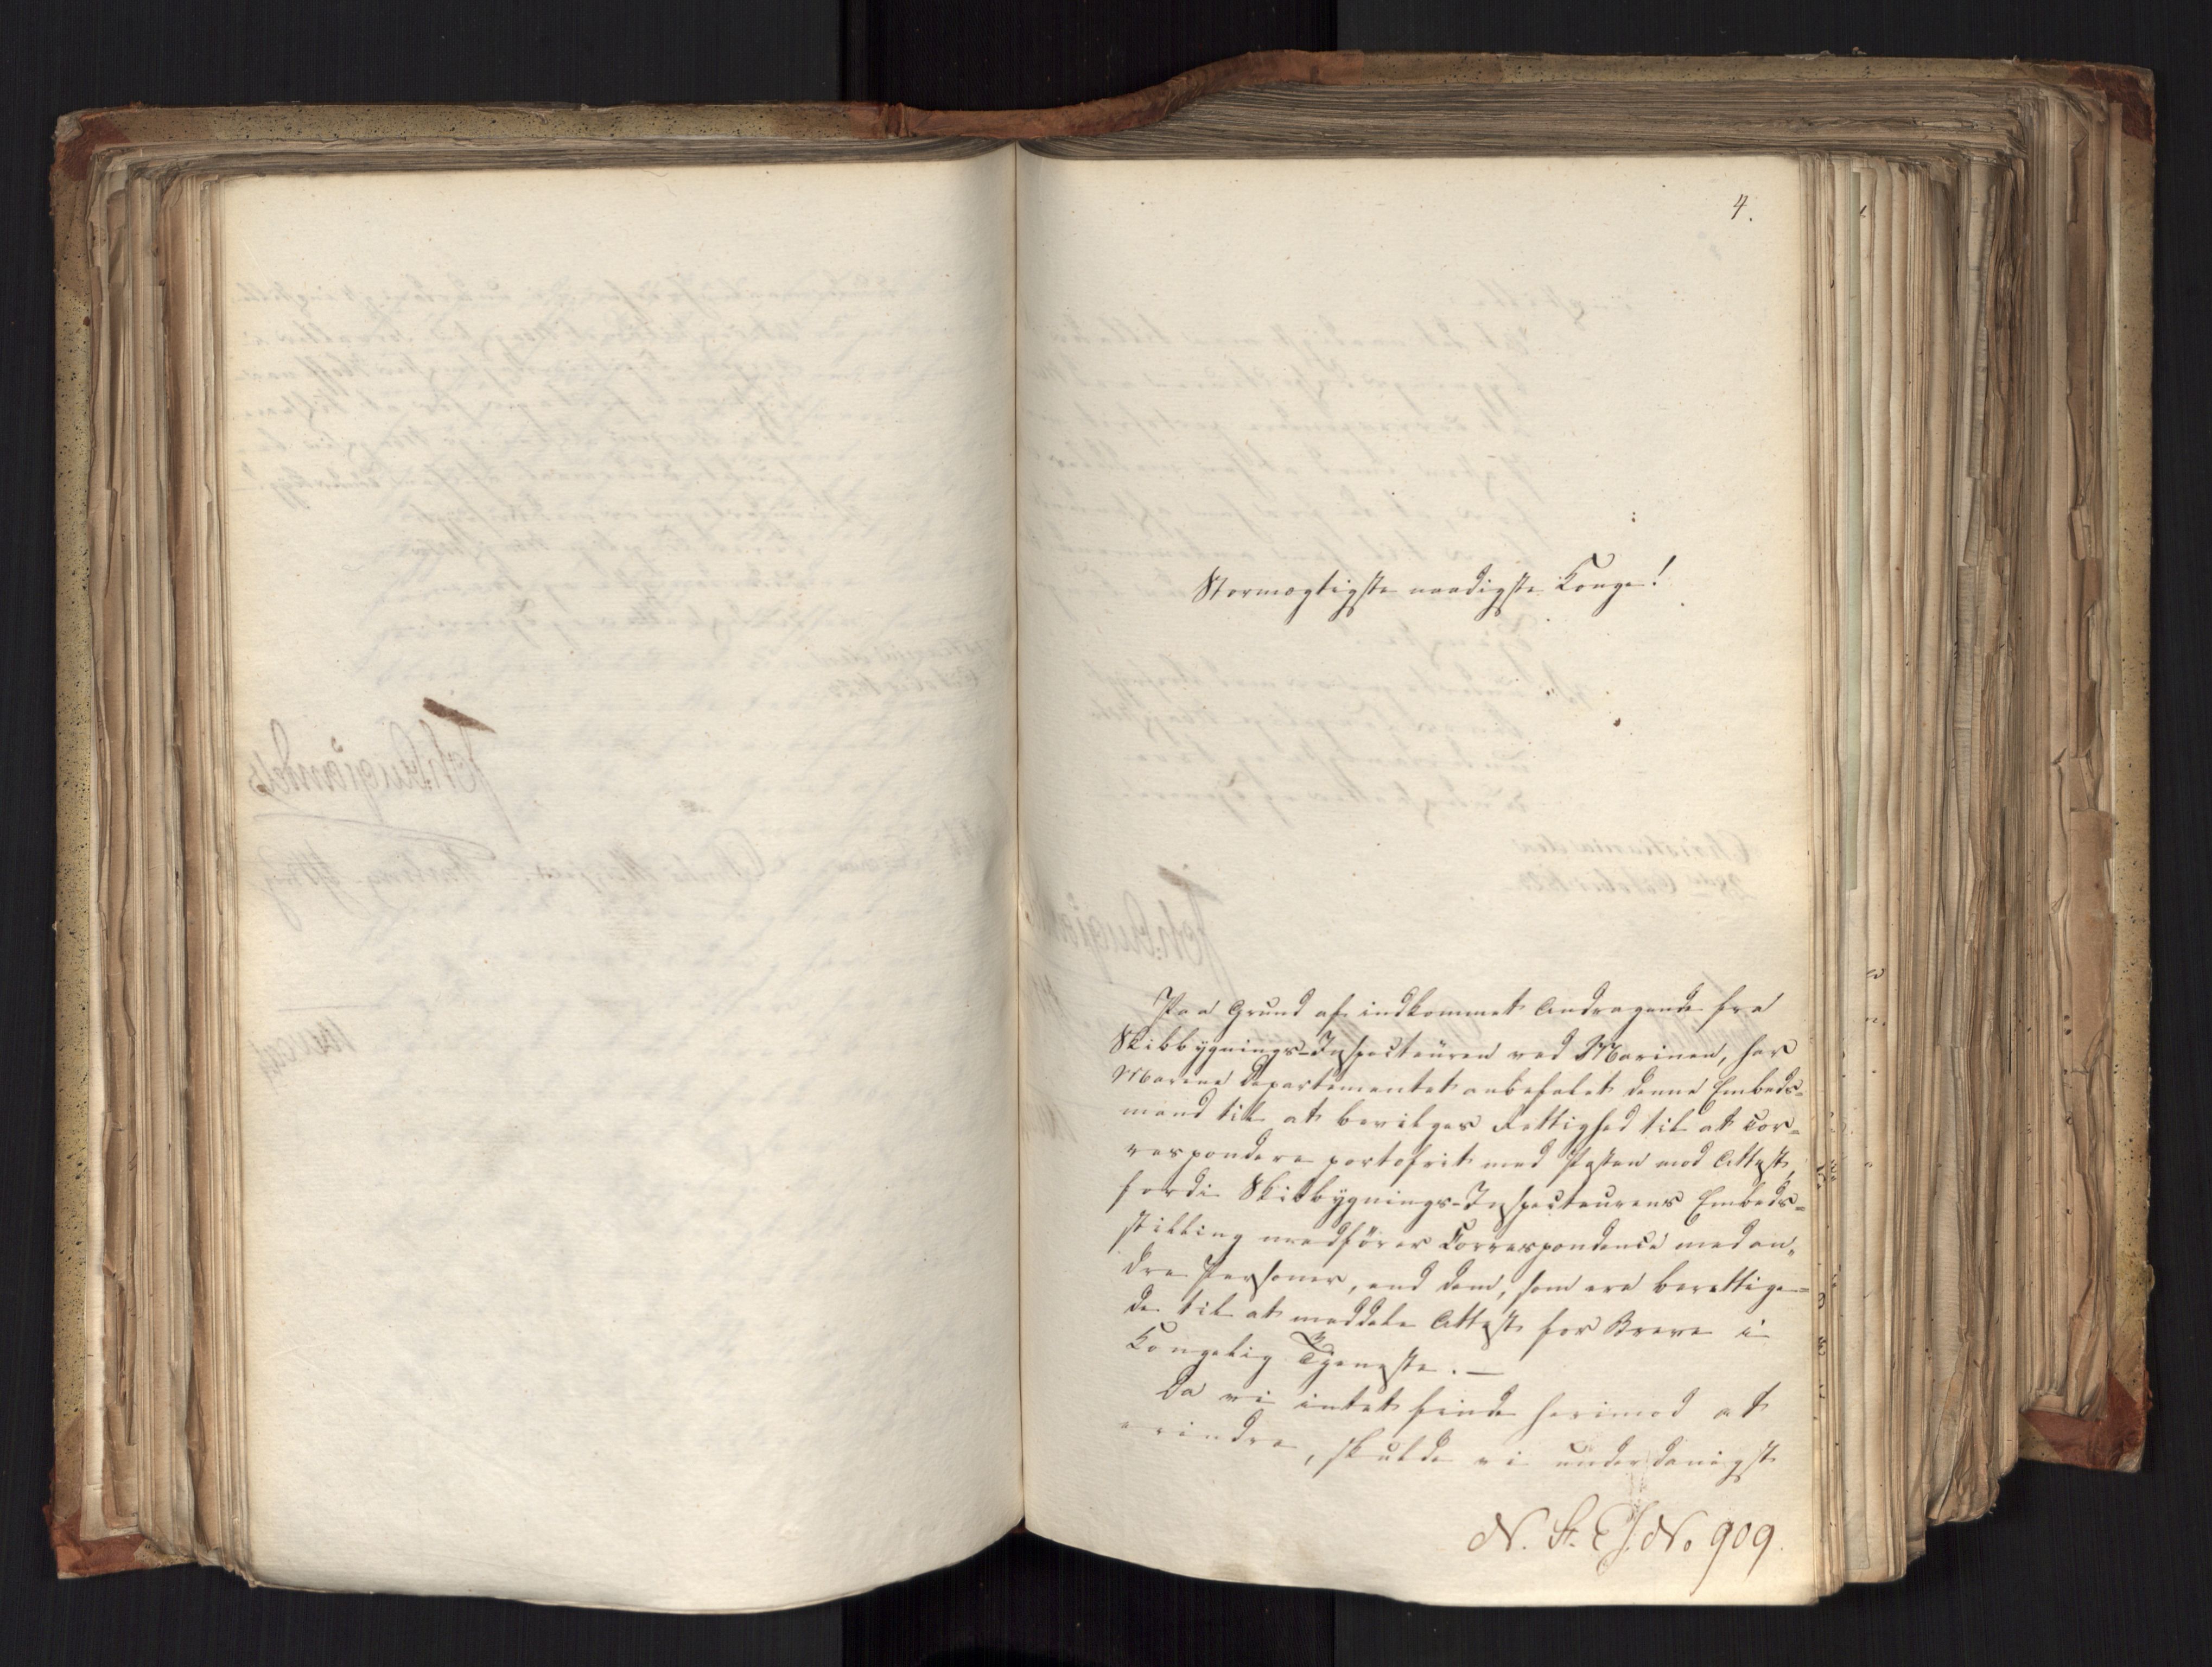 4.
Stormægtigste naadigste Konge!
Paa Grund af indkommet Andragende fra
Skibbygnings-Inspecteuren ved Marinen, har
Marine Departementet anbefalet denne Embeds=
mand til at bevilges Rettighed til at cor=
respondere portofrit med Posten mod Attest,
fordi Skibbygnings-Inspecteurens Embeds=
stilling medfører Correspondence med an„
dre Personer, end dem, som ere berettige=
de til at meddele Attest for Breve i
Kongelig Tjeneste. —
Da vi intet finde herimod at
erindre, skulde vi underdanigst
N. St. C. J. No 909.